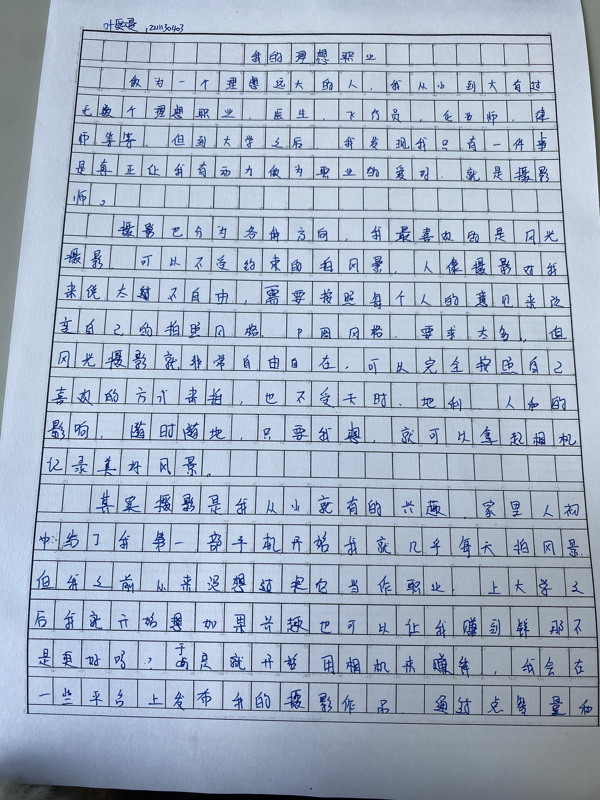 221130403
我的理想职业
做为一个理想远大的人，我从小到大有过
无数个理想职业，医生，飞行员，，律
师等等。但到大学之后，我发现我只有一件
是真正让我有动力做为职业的爱好，就是摄影
师。
摄影也分为各种方向，我最喜欢的是风光
摄影，可以不受约束的拍风景，人像摄影对我
来说太不自由，需要按照每个人的意见来改
变自己的拍照风格，P图风格，要求太多，但
风光摄影就非常自由自在，可以完全按照自己
喜欢的方式来拍，也不受天时、地利、人和的
影响，随时随地，只要我想，就可以拿起相机
记录美好风景。
其实摄影是我从小就有的兴趣，家里人初
中给了我第一部手机开始我就几乎每天拍风景
但我之前从来没想过把它当作职业，上大学之
后我就开始想如果兴趣也可以让我赚到钱那不
是更好吗？于是就开始用相机来赚钱，我会在
一些平台上发布我的摄影作品，通过点赞量和